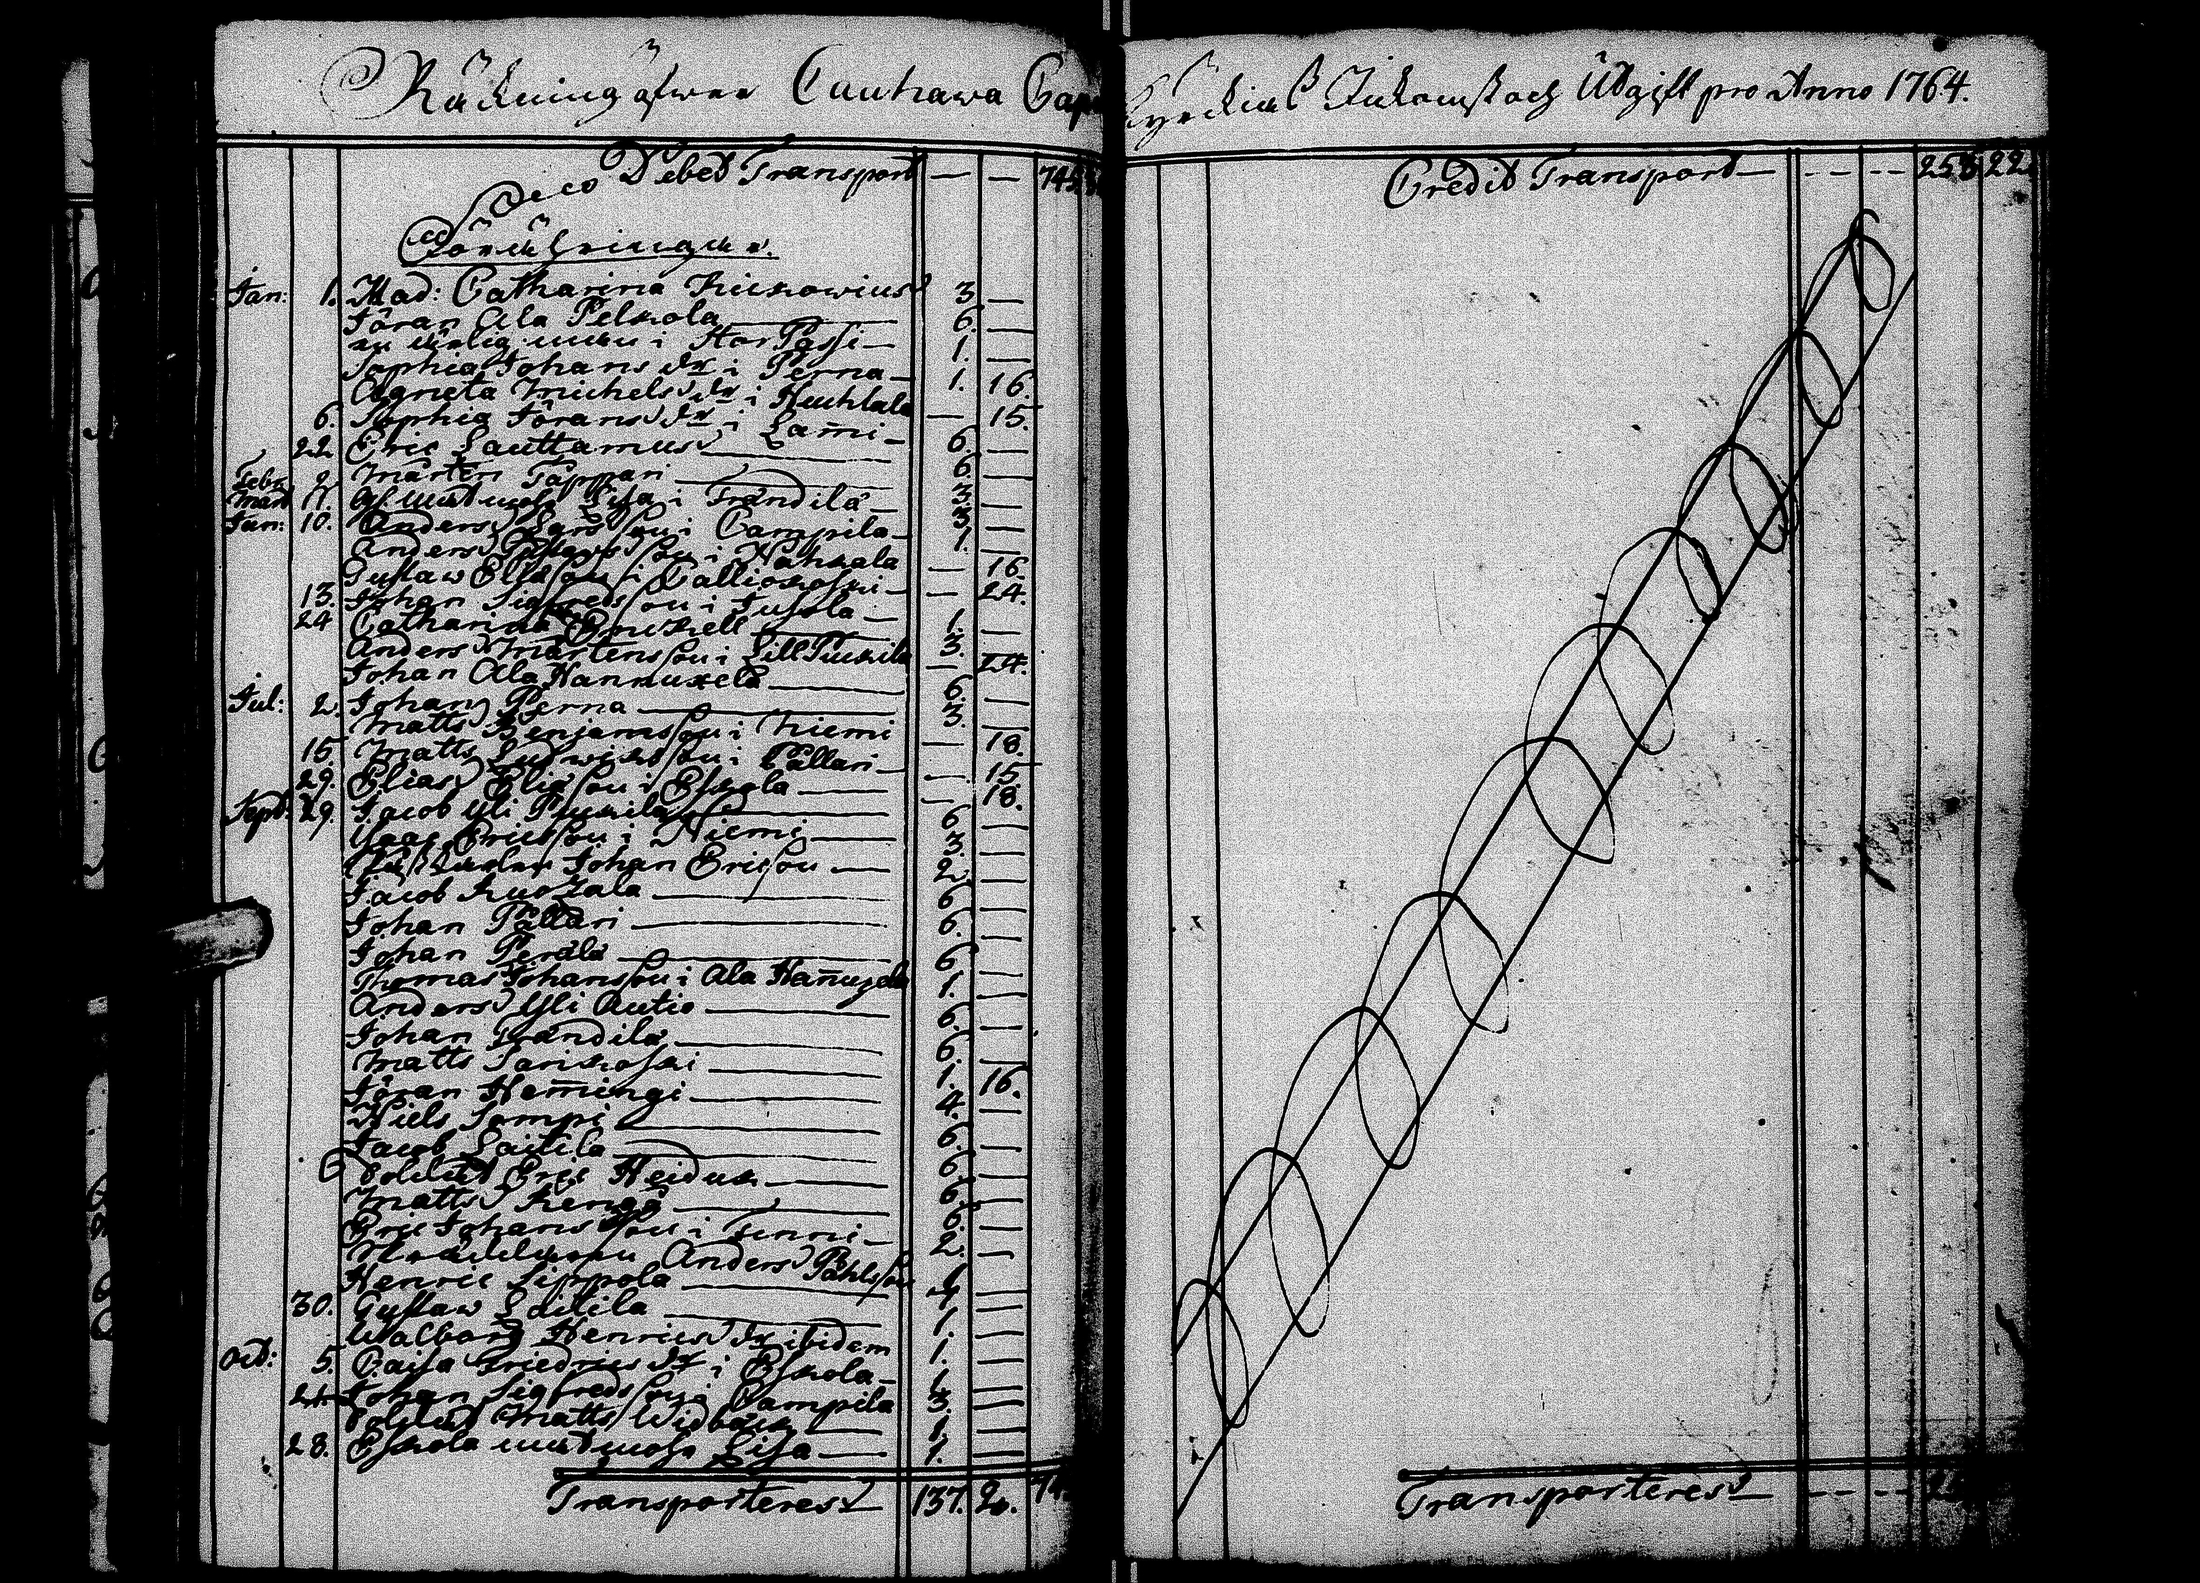 Räkning öfwer Cauhawa Cap
Kyrckias Inkomst och Utgift pro Anno 1764.
Debet Transport — — 745
Förähringar.
Jan: 1. Mad: Catharina 3 —
Jöran Ala Pelkola 6. —
i Stor Passi — 1. —
Sophia Johans dr i Perna — 1. 16.
Agneta Michels dr i Huhtala — 15.
6. Sophia Jörans dr i Lam̄i — 6. —
22. Eric Lauttamus 6 —
Febr 2 Mårten Tappari 3. —
Mart 11. Lisa i Frändilä — 3. —
Jan: 10. Anders Larsson i Campila — 1. —
Anders Gustafsson i Hahkala — 16.
Gustaw Ersson i Calliokoski — 24.
13. Johan Sigfredsson i Jussila — 1. —
24 Catharina 3. —
Anders Mårtensson i Lill Puckila — 24.
Johan Ala Hannuxela 6. —
Jul: 2. Johan Perna 3. —
Matts Benjamsson i Niemi — 18.
15. Matts Ludwicksson i Pällari — — 15
29. Elias Eliesson i Eskola — 18.
Sept: 29. Jacob Yli Puckila 6 —
Isaac Ericsson i Niemi 3. —
Johan Ericsson — 2. —
Jacob Ruotzala 6 —
Johan Pällari 6. —
Johan Perälä 6 —
Thomas Johansson i Ala Han̄uxela 1. —
Anders Yli Rutio 6. —
Johan Frändilä 6. —
Matts Parikoski 1. 16.
Jöran Hem̄ingi 4. —
Niels Sompi 6. —
Jacob Laitila 6. —
Soldat Eric Heiduk 6. —
Matts Rengo 6. —
Eric Johansson i Tunni — 2. —
Anders Påhlsson 1 —
Henric Seppola 4 —
30. Gustaw Laitila 1. —
Walborg Henrics dr ibidem 1. —
Oct: 5. Caisa Friedrics dr i Eskola — 1. —
21 Johan Sigfredsson i Campila 3. —
Soldat Matts Widbäck 1. —
28. Eskola Lisa — 1. —
Transporteres — 137. 2. 74
Credit Transport — — — — 258 22.
Transporteres — — — —